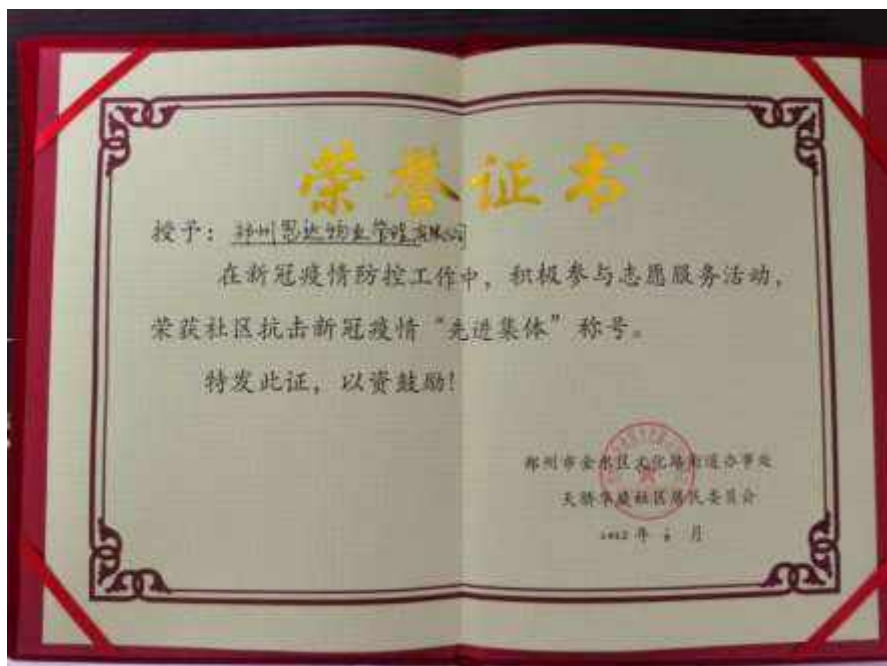 荣誉证书
授予：郑州冠达物业管理有限公司
在新冠疫情防控工作中，积极参与志愿服务活动，
荣获社区抗击新冠疫情“先进集体”称号。
特发此证，以资鼓励！
郑州市金水区文化路街道办事处
天骄华庭社区居民委员会
年 月